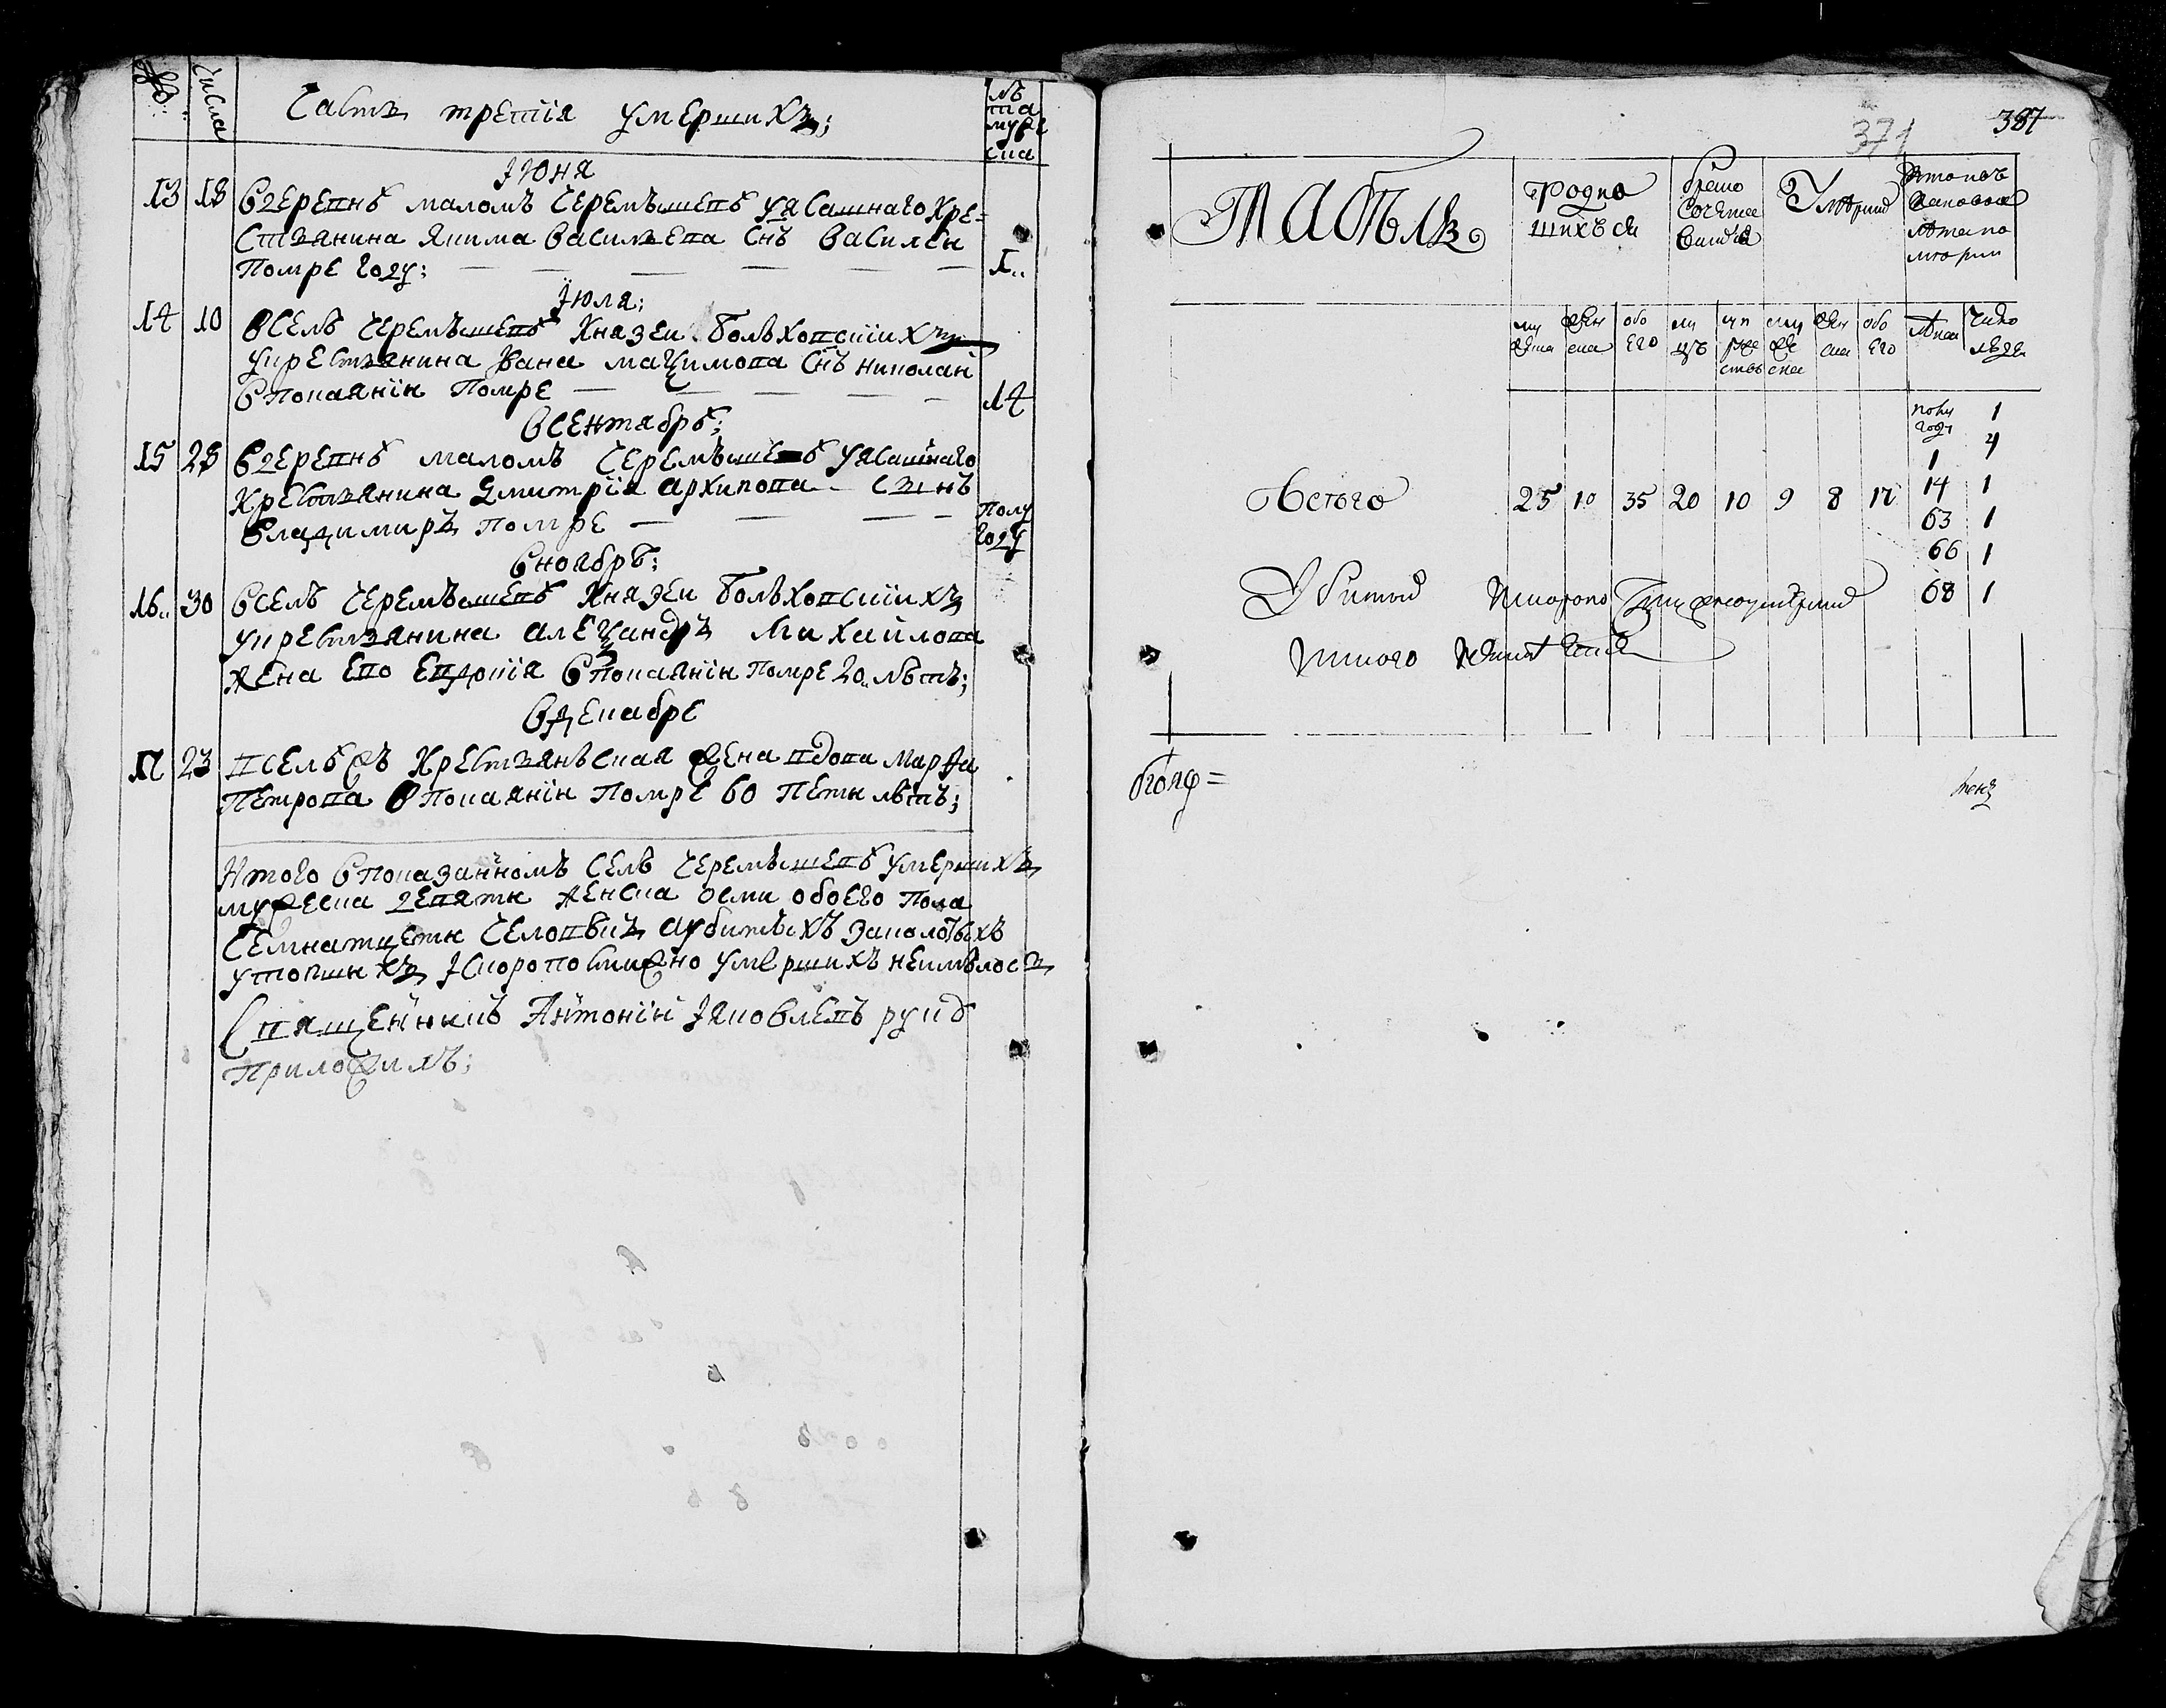 № числа Часть третїя умершихъ; лѣта муже ска
Iюня
13 18 в деревнѣ маломъ черемышевѣ у ясашнаго кре=
стьянина якима васильева снъ василеи
помре году; 1
Iюля;
14 10 в селѣ черемышевѣ князеи болховскиихъ
у крестьянина Ивана мацимова снъ николаи
с покаянїи помре 14
в сентябрѣ;
15 28 в деревнѣ маломъ черемышевѣ у ясашнаго
крестьянина дмитрїя архипова сынъ
владимиръ помре полу году
в ноябрѣ;
16 30 в селѣ черемышевѣ князеи болховскиихъ
у крестьянина алеѯандръ михаилова
жена ево в покаянїи помре 20 лѣтъ;
в декабре
17 23 в селѣ жъ крестьянъская жена вдова марѳа
петрова в покаянїи помре 60 пети лѣтъ;
Итого в показанномъ селѣ черемышевѣ умершихъ
мужеска девяти женска осми обоего пола
семнатцети человѣкъ а убитыхъ заколотыхъ
утопшихъ I скоропостижно умершихъ неимѣлось
Священникъ Антонїи Iяковлевъ руку
приложилъ;
371 387
Табель родившихся брако сочета умерших
му жеска жен ска обо его му жен ска обо его лѣта число людеи
полу году 1
1 4
Всего 25 10 35 20 10 9 8 17 14 1
63 1
66 1
68 1
убитых
никого